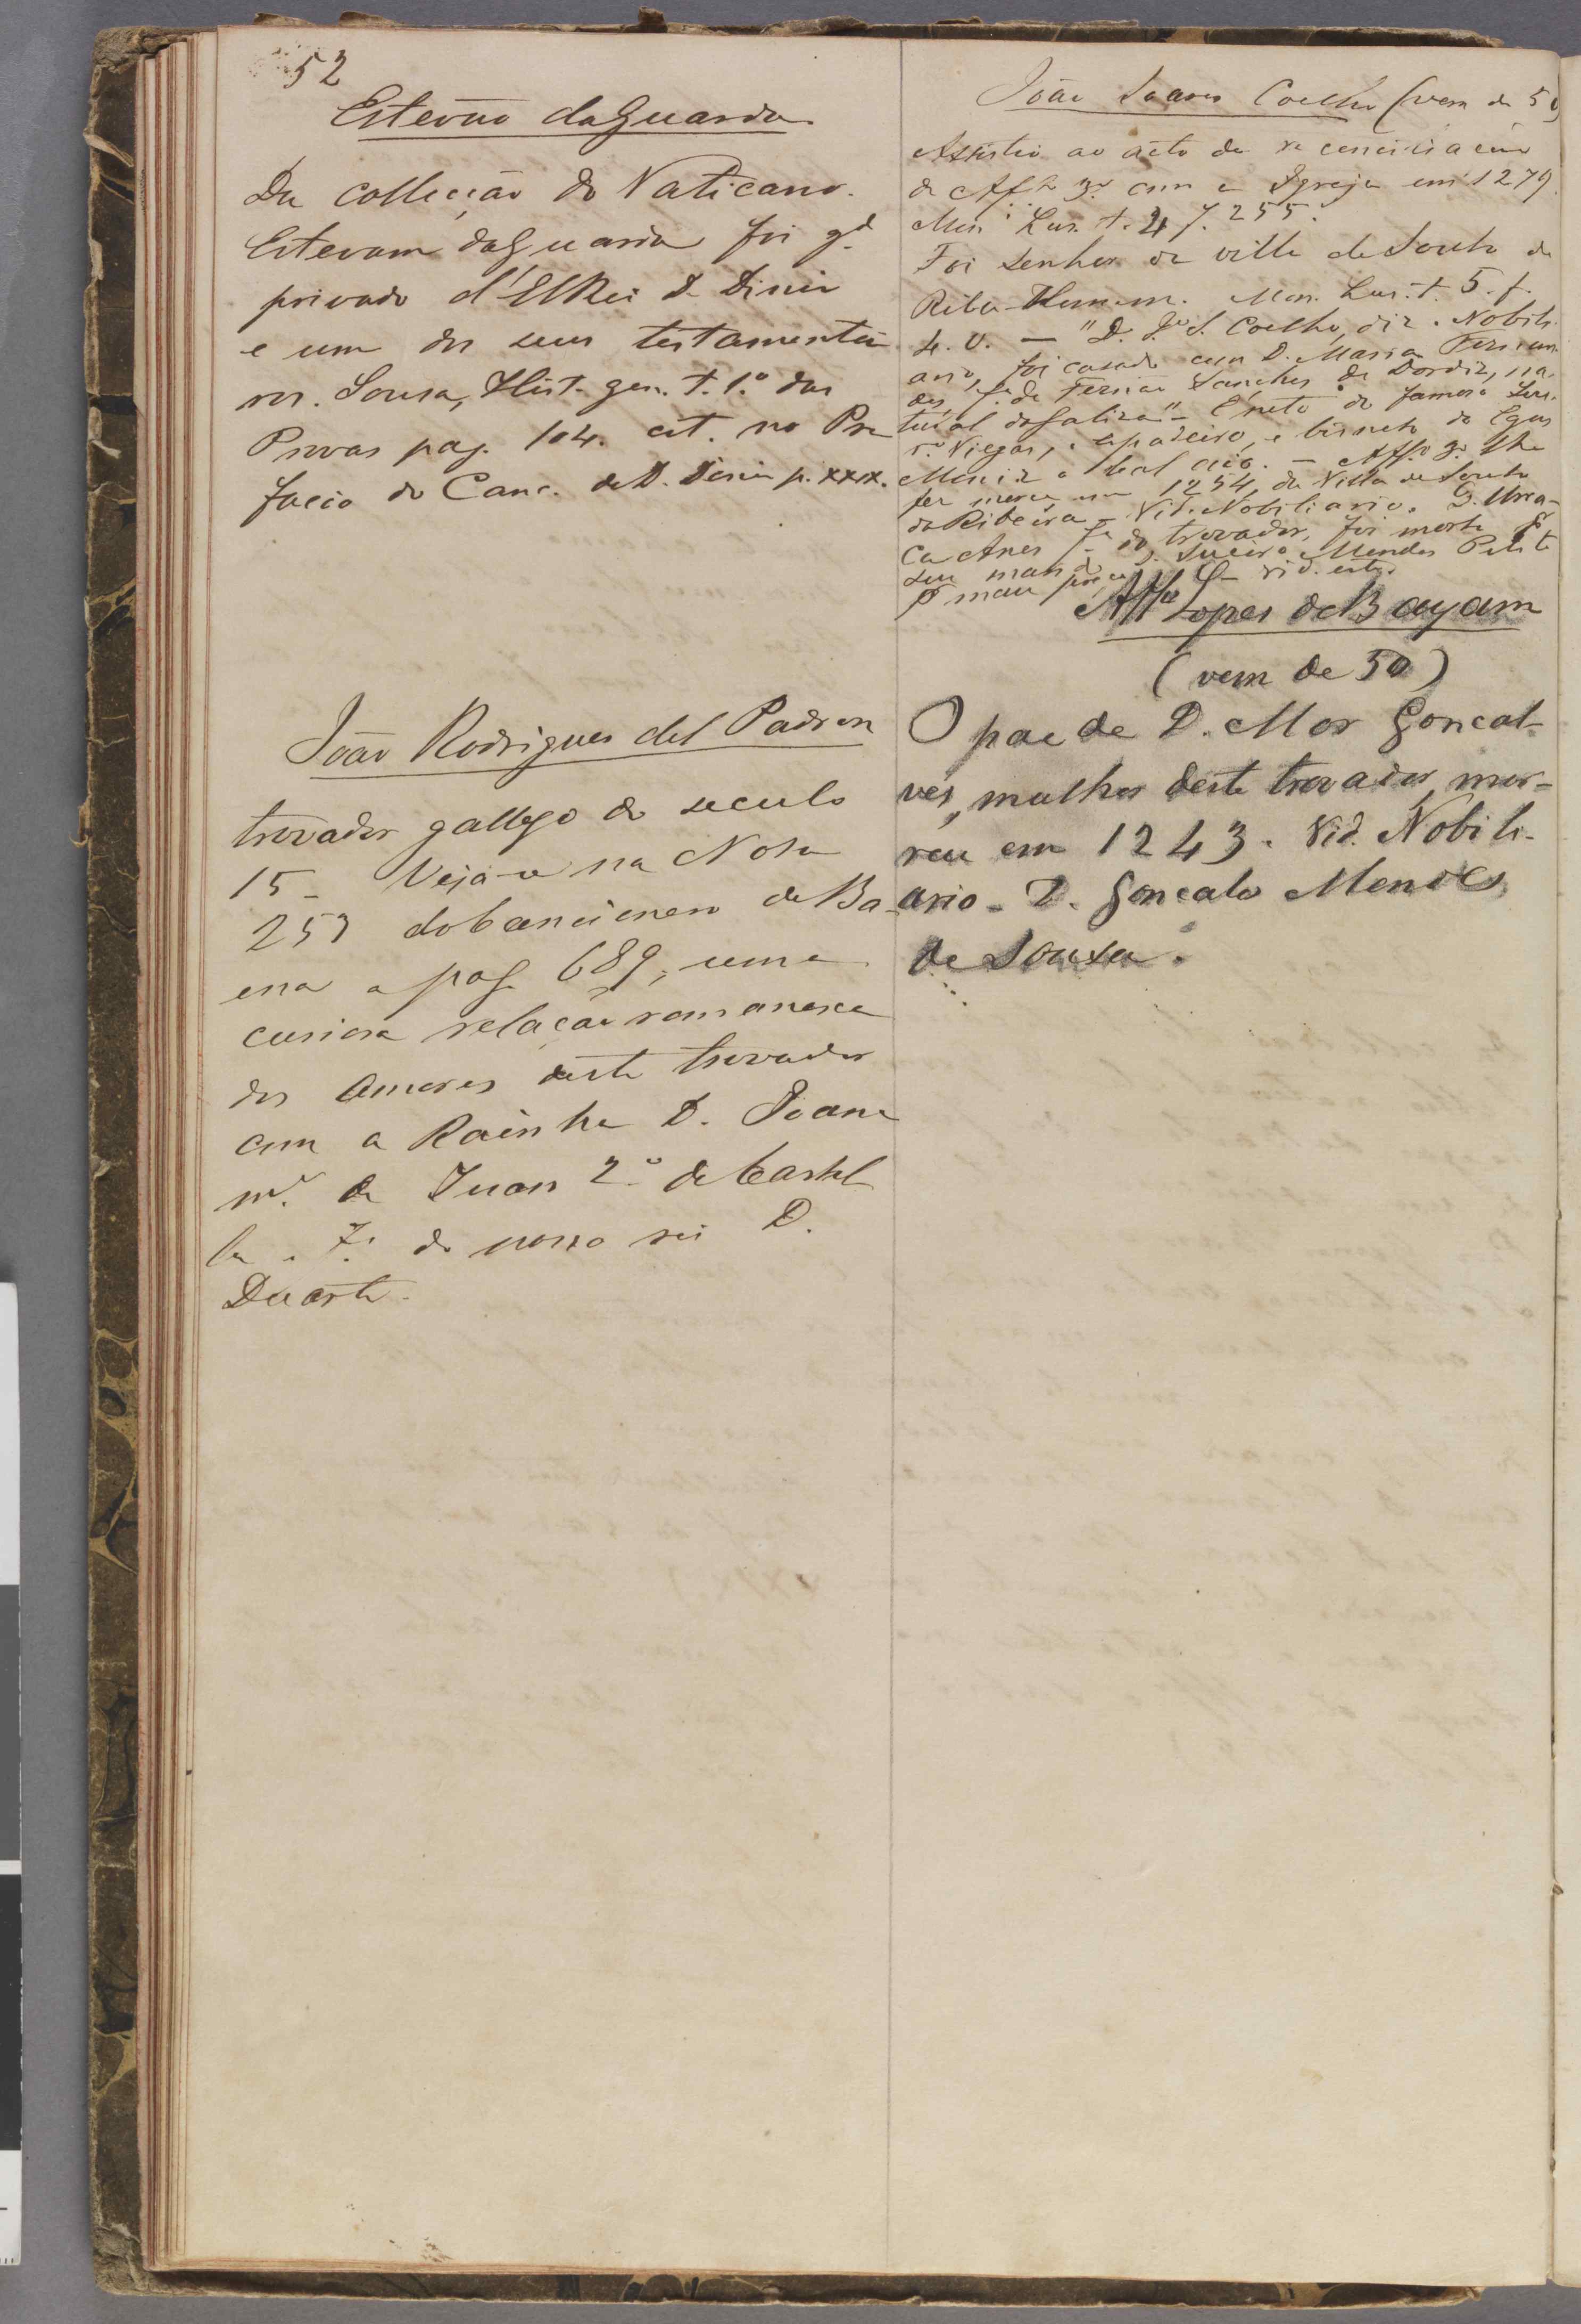 52
Estevão da Guarda.
Da collecção do Vaticano.
Estevam da Guarda foi gd.
privado d'ElRei D. Diniz
e um dos seus testamentei
ros. Sousa, Hist. gen. t. 1.º das
Provas pag. 104. cit. no Pre
facio do Canc. de D. Diniz p. xxix.
João Rodrigues del Padron
trovador gallego do seculo
15 - Veja-se na Nota
253 do Cancionero de Ba-
ena a pag. 689, uma
curiosa relação romanesca
dos amores deste trovador
com a Rainha D. Joana
mr. de Juan 2.º de Castel
la e fª. do nosso rei D.
Duarte.
João Soares Coelho (vem de 50)
Assistio ao acto da reconciliação
de Affº 3.º com a Igreja em 1279.
Mon. Lus. t. 4 f. 255.
Foi senhor da villa de Souto de
Riba-Homem. Mon. Lus. t. 5. f.
4. v. — "D. J.º S. Coelho, diz o Nobili-
ario, foi casado com D. Maria Fernan-
des fª. de Fernão Sanches de Dordiz, na-
tural da Galiza" - É neto do famoso Lou-
r.ço Viegas, o espadeiro, e bisneto de Egas
Moniz o leal aio. — Affº 3.º lhe
fez mercê em 1254, da Villa de Souto
da Ribeira - Vid. Nobiliario. D. Urra-
ca Anes fª. do trovador, foi morta p.
seu marido D. Sueiro Mendes Petite
p mau preço - vid. este.
Affº Lopes de Bayam
(vem de 50)
O pae de D. Mor Gonçal-
ves, mulher deste trovador, mor-
reu em 1243. Vid. Nobili-
ario - D. Gonçalo Mendes
de Sousa.